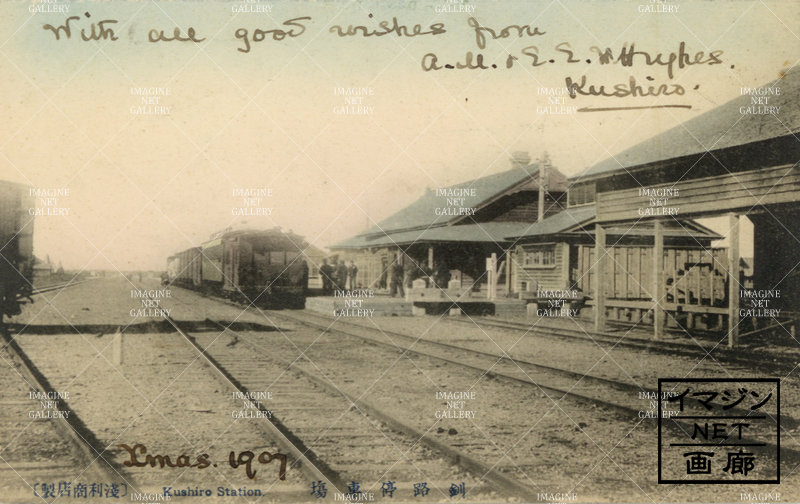 With all good wishes from
A.M. & E.E. W Hughes.
Kushiro.
Xmas. 1907
〔淺利商店製〕 Kushiro Station. 釧路停車場
イマジン
NET
画廊
IMAGINE
NET
GALLERY